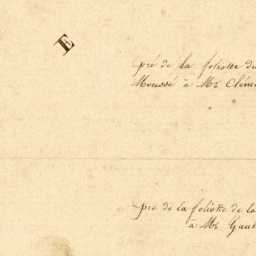 E
pré de la foliotte du
Moussé à Mr Clém
pré de la foliotte de la
à Mr Gaul